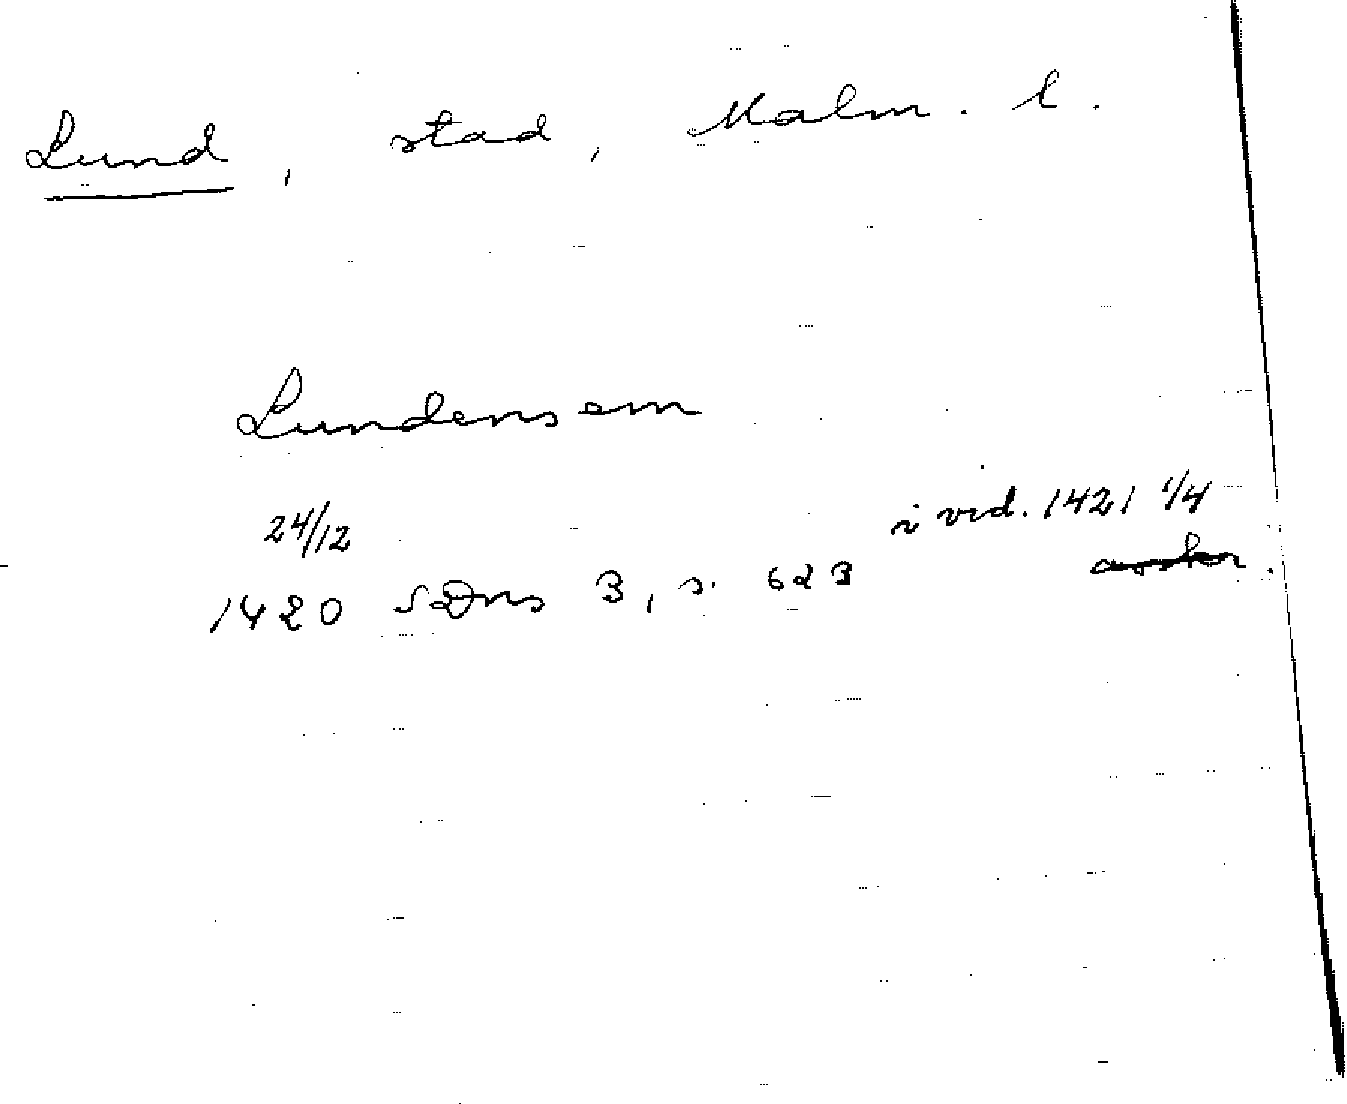 Lund, stad, Malm. l.
Lundensem
24/12 i vid. 1421 1/4
1420 SDns 3, s. 623 avskr.